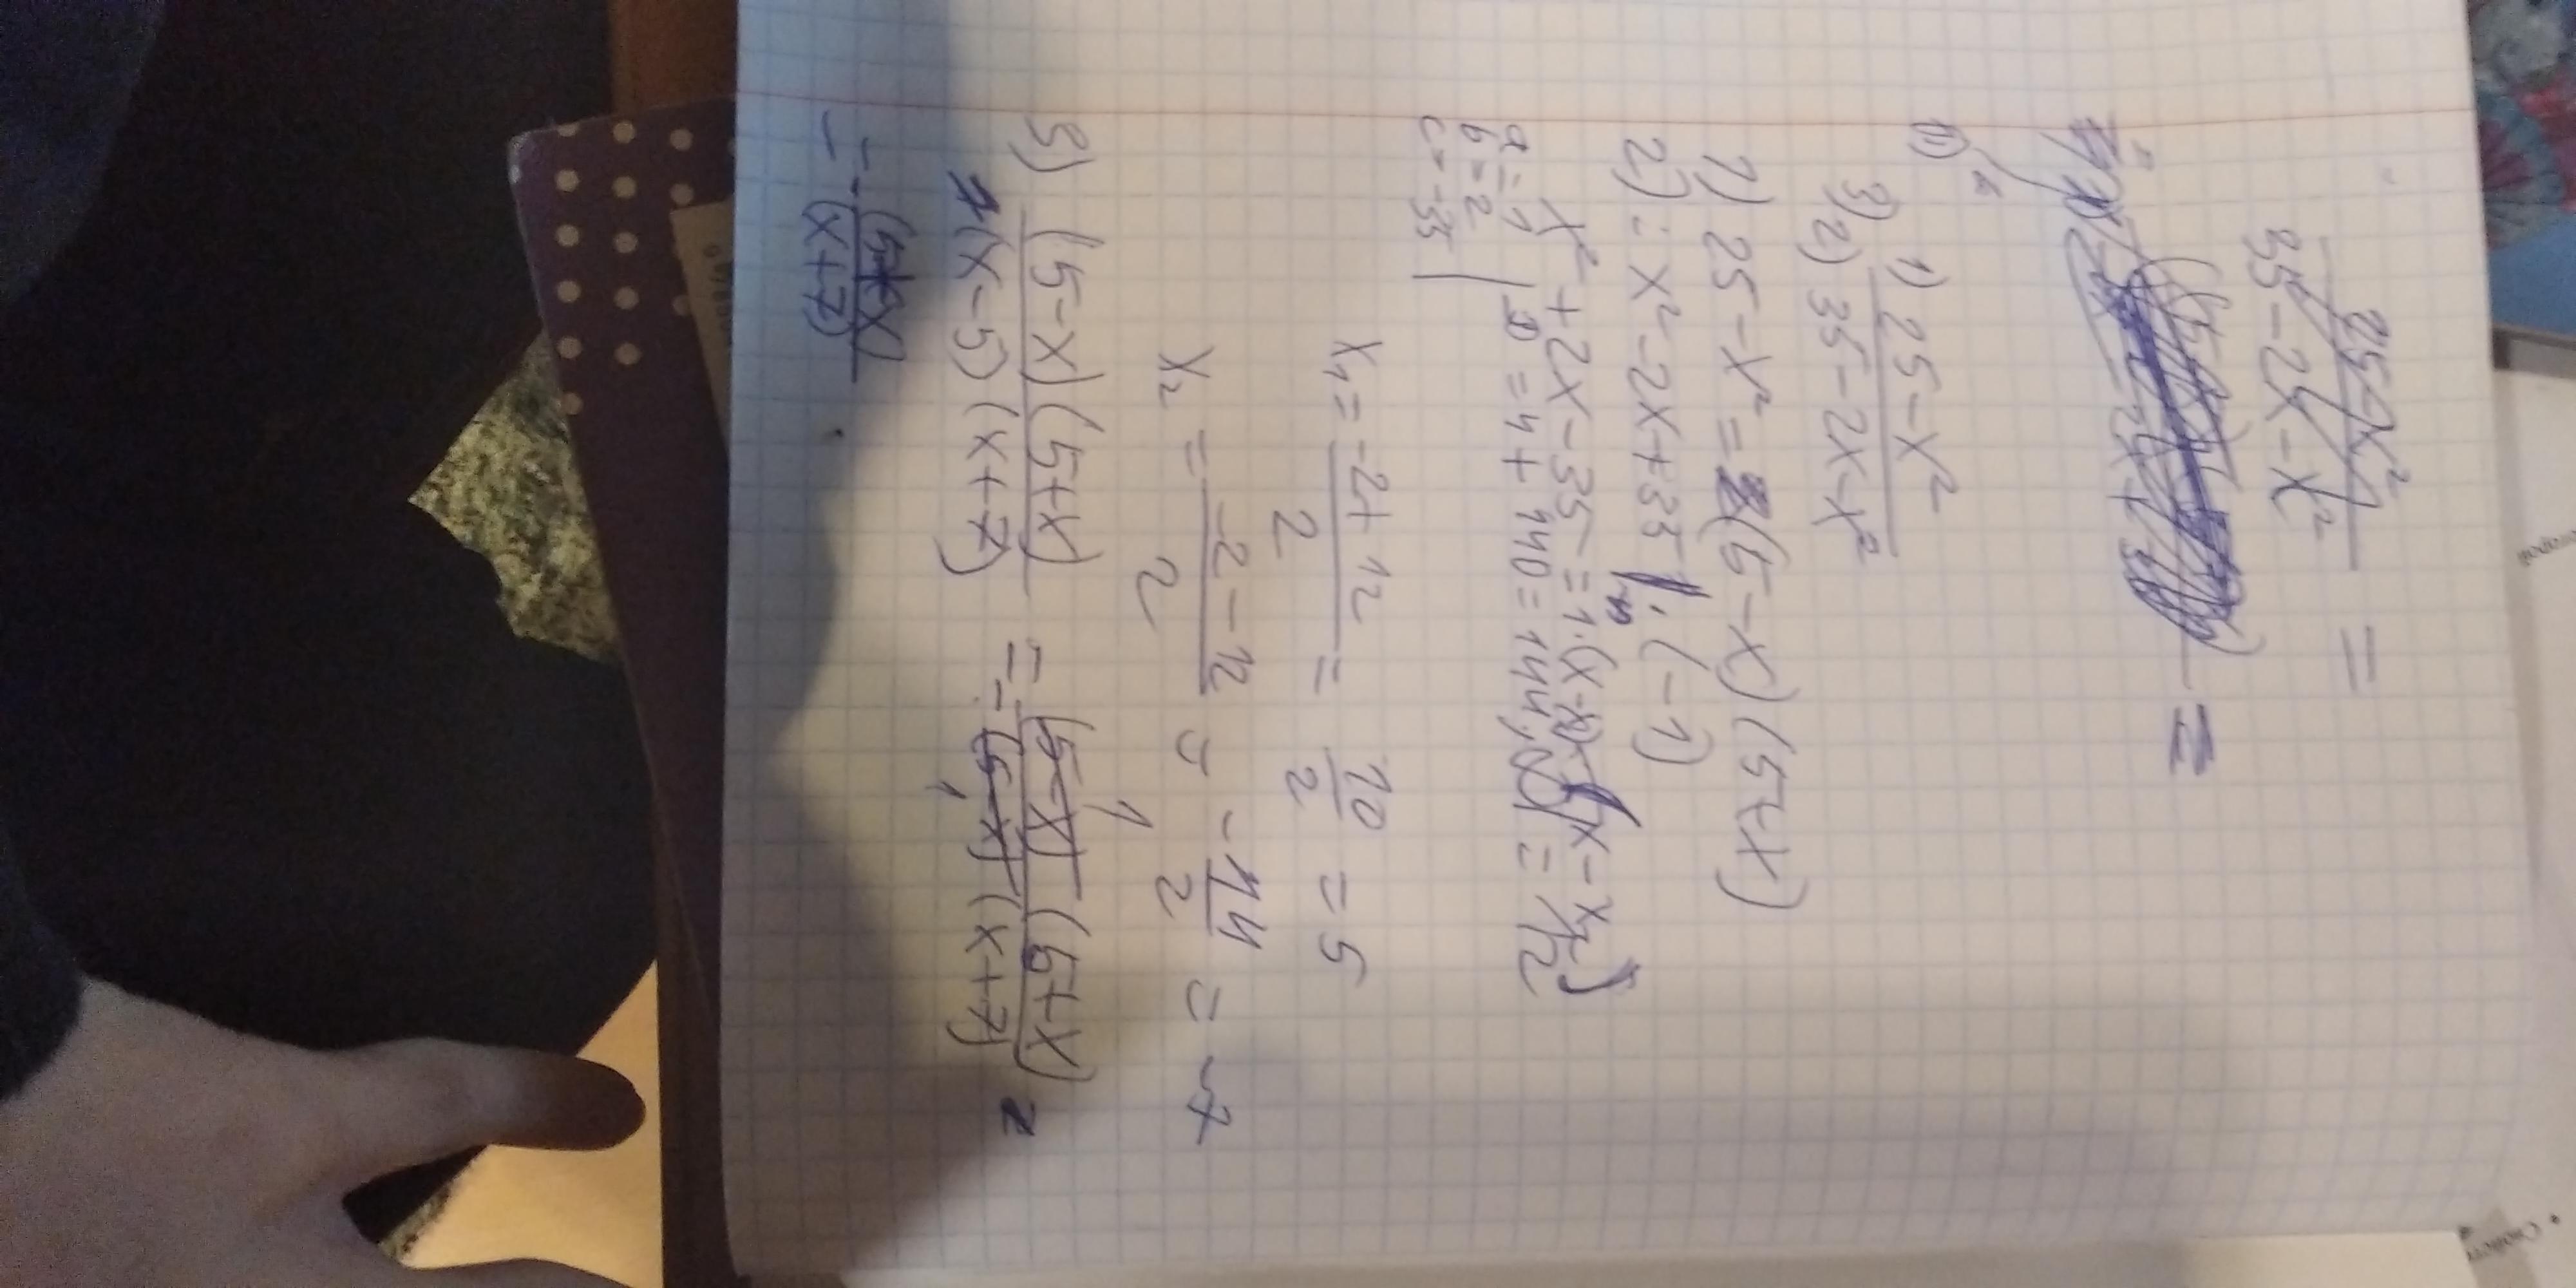 25-x²
35-2x-x² =
=
1) 25-x²
3) 2) 35-2x-x²
1) 25-x² = (5-x)(5+x)
2) : x²-2x+35 | · (-1)
x²+2x-35 = 1·(x-x₁)·(x-x₂)
a=1
b=2
c=-35 | D = 4+140=144, = 12
x₁ = -2+12 / 2 = 10/2 = 5
x₂ = -2-12 / 2 = -14/2 = -7
3) (5-x)(5+x) / (x-5)(x+7) = - (5-x)(5+x) / (5-x)(x+7) =
1
1
(x+7)